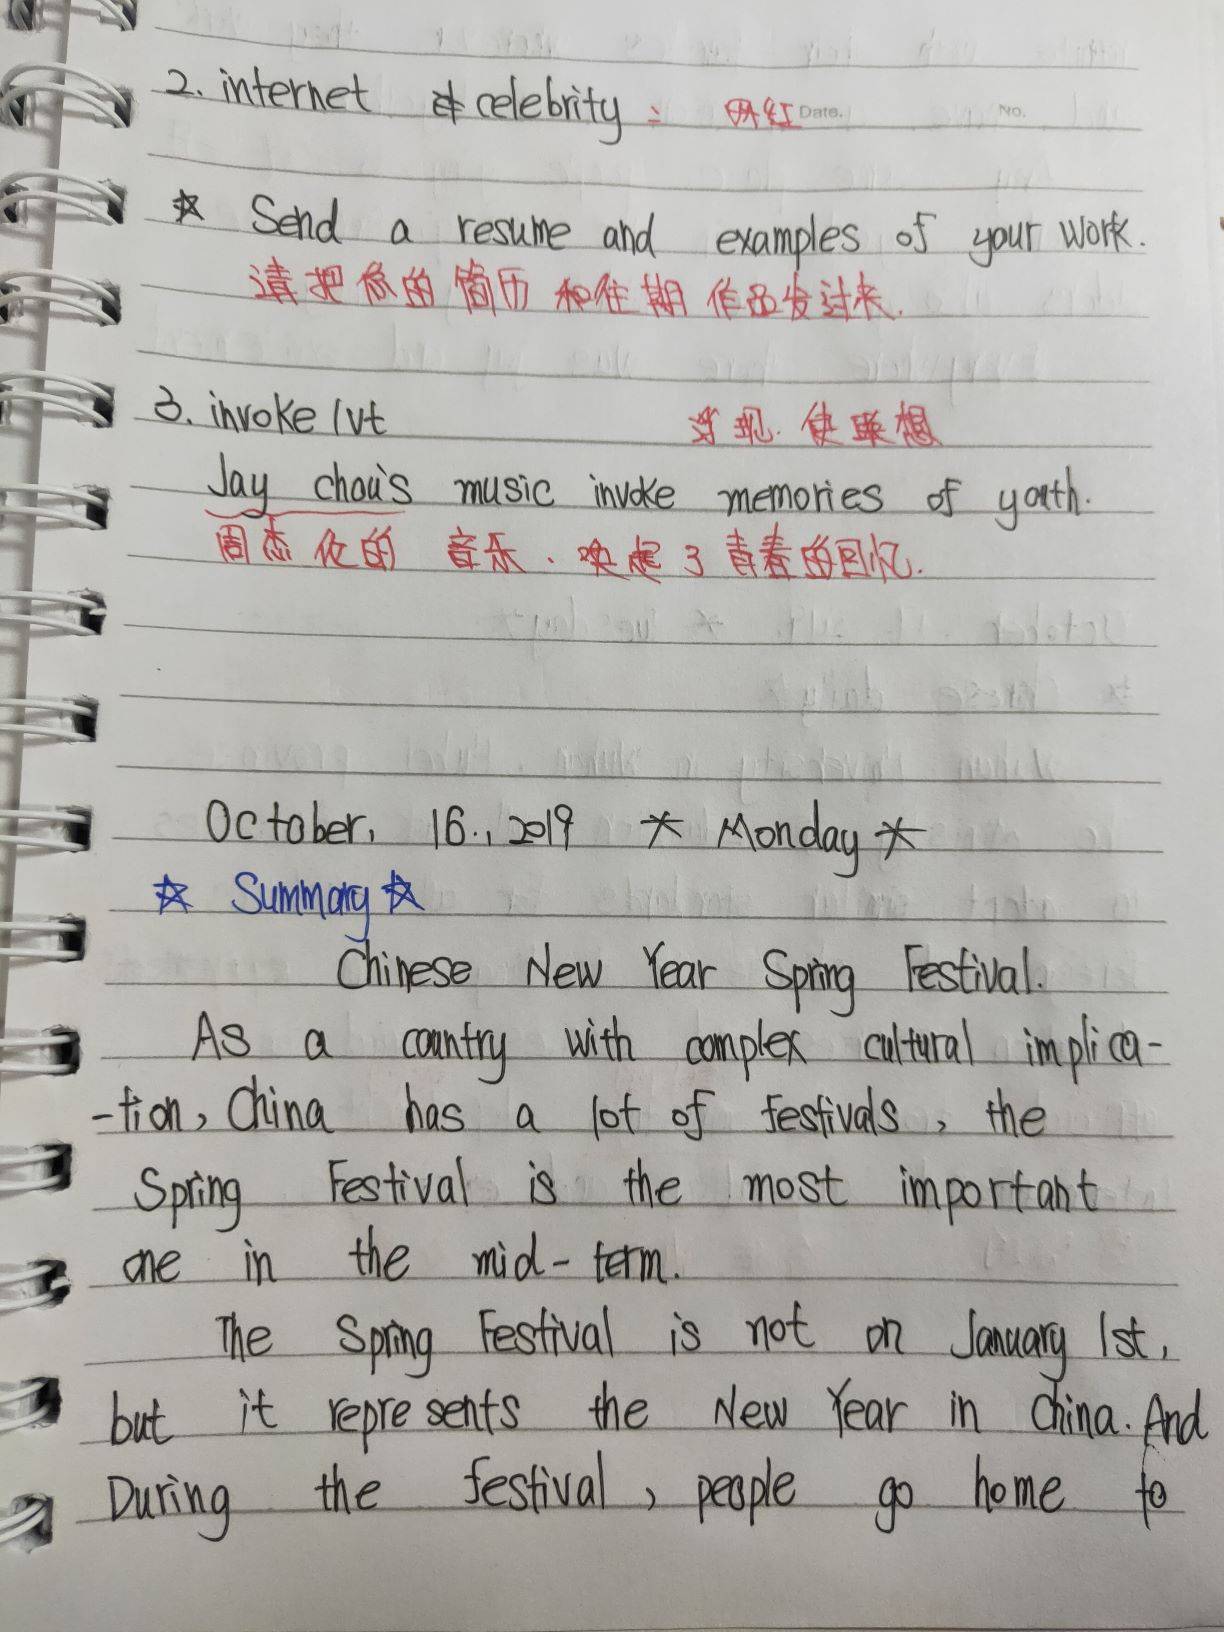 2. internet celebrity : 网红 Date. No.
☆ Send a resume and examples of your work.
请把你的简历和往期作品发过来.
3. invoke /vt 浮现. 使联想
Jay chou's music invoke memories of youth.
周杰伦的音乐.唤起了青春的回忆.
October, 16., 2019 * Monday *
☆ Summary ☆
Chinese New Year Spring Festival.
As a country with complex cultural implica-
-tion, China has a lot of festivals, the
Spring Festival is the most important
one in the mid-term.
The Spring Festival is not on January 1st,
but it represents the New Year in China. And
During the festival, people go home to